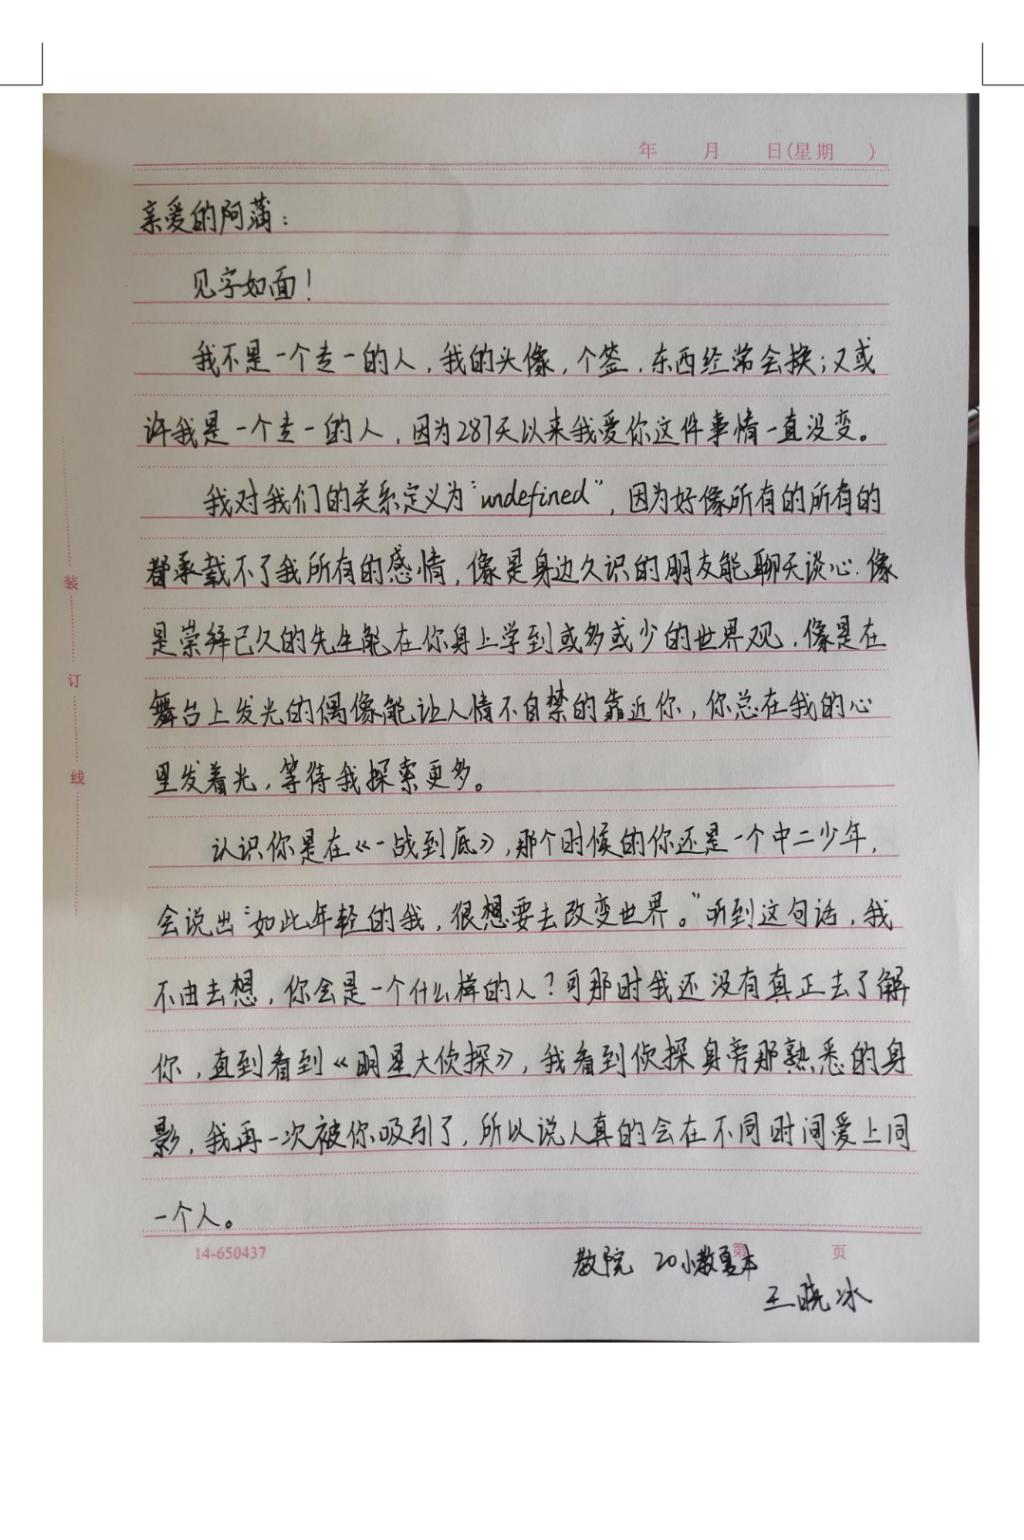 年 月 日(星期 )
亲爱的阿蒲：
见字如面！
我不是一个专一的人，我的头像，个签，东西经常会换；又或
许我是一个专一的人，因为287天以来我爱你这件事情一直没变。
我对我们的关系定义为“undefined”，因为好像所有的所有的
都承载不了我所有的感情，像是身边久识的朋友能聊天谈心，像
是崇拜已久的先生能在你身上学到或多或少的世界观，像是在
舞台上发光的偶像能让人情不自禁的靠近你，你总在我的心
里发着光，等待我探索更多。
认识你是在《一战到底》，那个时候的你还是一个中二少年，
会说出“如此年轻的我，很想要去改变世界。”听到这句话，我
不由去想，你会是一个什么样的人？可那时我还没有真正去了解
你，直到看到《明星大侦探》，我看到侦探身旁那熟悉的身
影，我再一次被你吸引了，所以说人真的会在不同时间爱上同
一个人。
14-650437 第 页
教院 20小教夏本
王晓冰
装
订
线